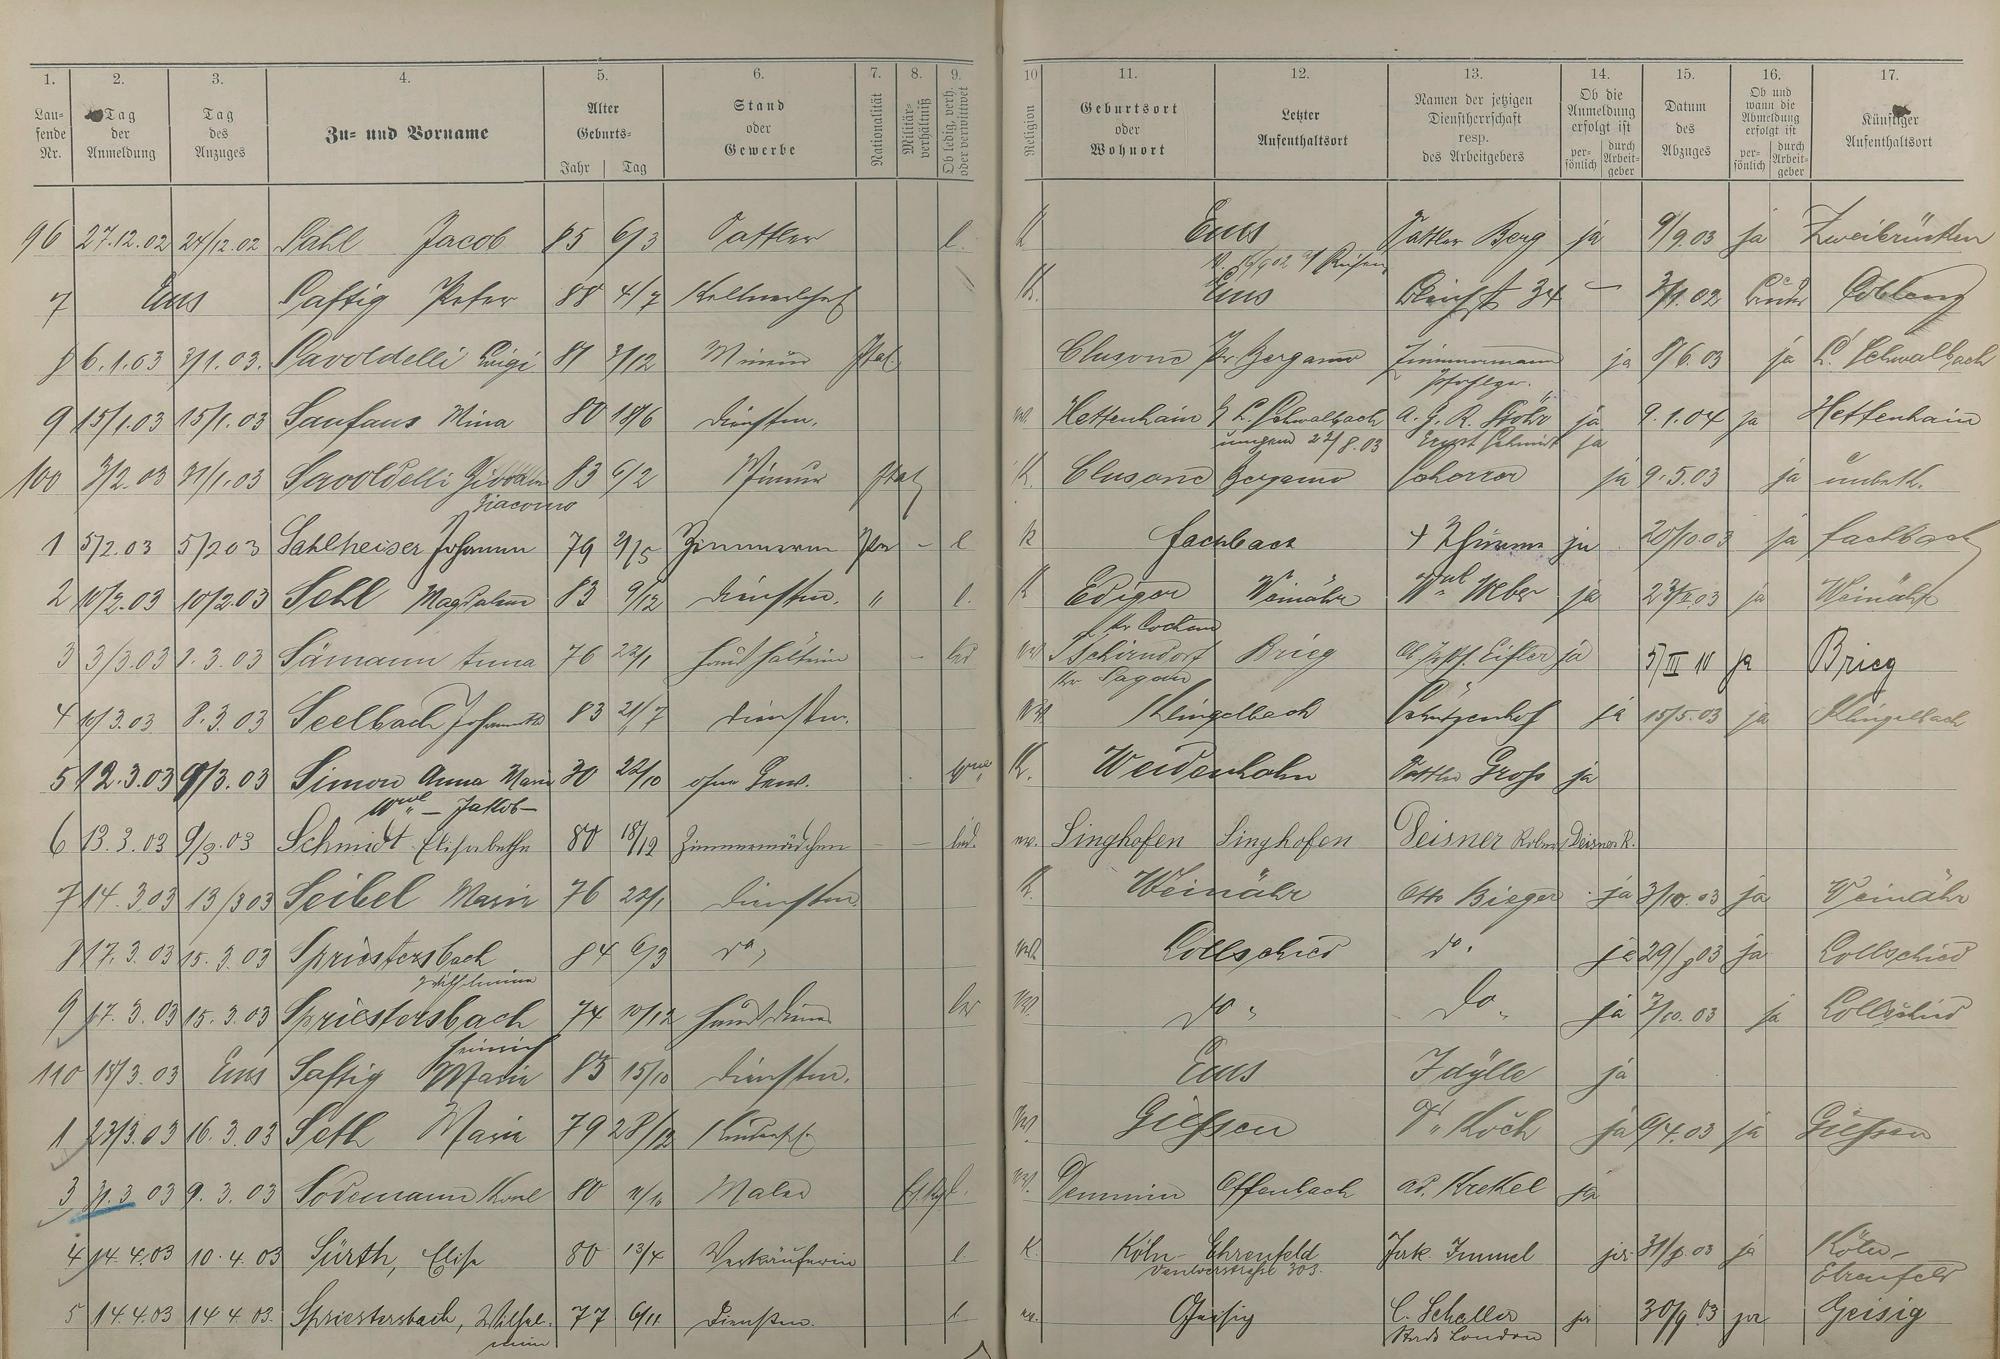 1. 2. 3. 4. 5. 6. 7. 8. 9. 10 11. 12. 13. 14. 15. 16. 17.
Lau-
fende
Nr.
Tag
der
Anmeldung
Tag
des
Anzuges
Zu- und Vorname
Alter
Geburts-
Jahr Tag
Stand
oder
Gewerbe
Nationalität
Militär-
verhältniß
Ob ledig, verh.
oder verwittwet
Religion
Geburtsort
oder
Wohnort
Letzter
Aufenthaltsort
Namen der jetzigen
Dienstherrschaft
resp.
des Arbeitgebers
Ob die
Anmeldung
erfolgt ist
per-
sönlich
durch
Arbeit-
geber
Datum
des
Abzuges
Ob und
wann die
Abmeldung
erfolgt ist
per-
sönlich
durch
Arbeit-
geber
Künftiger
Aufenthaltsort
96 27.12.02 24/12.02 Sahl Jacob 85 6/3 Sattler l. K Ems Sattler Berg ja 9/9.03 ja Zweibrücken
7 Ems Saftig Peter 88 4/7 K. Ems 34 Coblenz
8 6.1.03 3/1.03. Savoldelli Luigi 81 3/12 Mineur Ital. Clusone Pr. Bergamo Zimmermann ja 8/6.03 ja L. Schwalbach
9 15/1.03 15/1.03 Saufaus Mina 80 18/6 Dienstm. Hettenhain L. Schwalbach A. G. R. Stöhr ja 9.1.04 ja Hettenhain
22/8.03 Ernst Schmidt ja
100 3/2.03 31/1.03 Savoldelli 83 6/2 Mineur Ital K. Clusone Bergamo Schorror ja 9.5.03 ja unbek.
Giacomo
1 5/2.03 5/2 03 Sahlheiser Johann 79 29/5 Zimmerm Pr - l K Fachbach ja 20/10.03 ja Fachbach
2 10/2.03 10/2.03 Sehl Magdalena 83 9/12 Dienstm. " l. K Ediger Weinähr Wwe Weber ja 23/II.03 ja Weinähr
Kr Cochem
3 3/3.03 8.3.03 Sämann Anna 76 22/1 Haushälterin - led Schirndorf Brieg Eifler ja 5/III 10 ja Brieg
Kr. Sagan
4 10/3.03 8.3.03 Seelbach 83 21/7 Dienstm. Klingelbach Schützenhof ja 15/5.03 ja Klingelbach
5 12.3.03 9/3.03 Simon Anna Maria 30 22/10 ohne Gew. Wwe K. Weidenhahn Sattler Groß ja
Wwe - Jakob -
6 13.3.03 9/3.03 Schmidt Elisabethe 80 18/12 Zimmermädchen - - led. ev. Singhofen Singhofen Deisner Deisner R.
7 14.3.03 13/3 03 Seibel Maria 76 22/1 Dienstm. K. Weinähr Otto Bieger ja 3/10.03 ja Weinähr
8 17.3.03 15.3.03 Spriestersbach 84 6/3 do Lollschied do. ja 29/ 03 ja Lollschied
Wilhelmine
9 17.3.03 15.3.03 Spriestersbach 74 10/12 Hausdiener led do " do " ja 3/10.03 ja Lollschied
Heinrich
110 18/3.03 Ems Saftig Maria 85 15/10 Dienstm. Ems Idylle ja
1 23/3.03 16.3.03 Seth Maria 79 28/12 Gießen Dr. Koch ja 9/4.03 ja Gießen
3 31.3 03 9.3.03 Sodemann Karl 80 Maler l. Demmin Offenbach Ad. Krekel ja
4 14.4.03 10.4.03 Sürth, Elise 80 13/4 Verkäuferin l K. Köln-Ehrenfeld Jak. Immel ja 31/8.03 ja Köln-
Venloerstraße 303. Ehrenfeld
5 14.4.03 14.4.03. Spriestersbach, Wilhel- 77 6/11 Dienstm. l ev. Geisig C. Scheller ja 30/9 03 ja Geisig
mine Stadt London